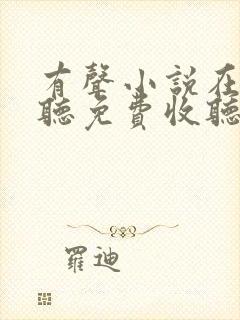 有聲小說在
聽免費收聽
羅迪